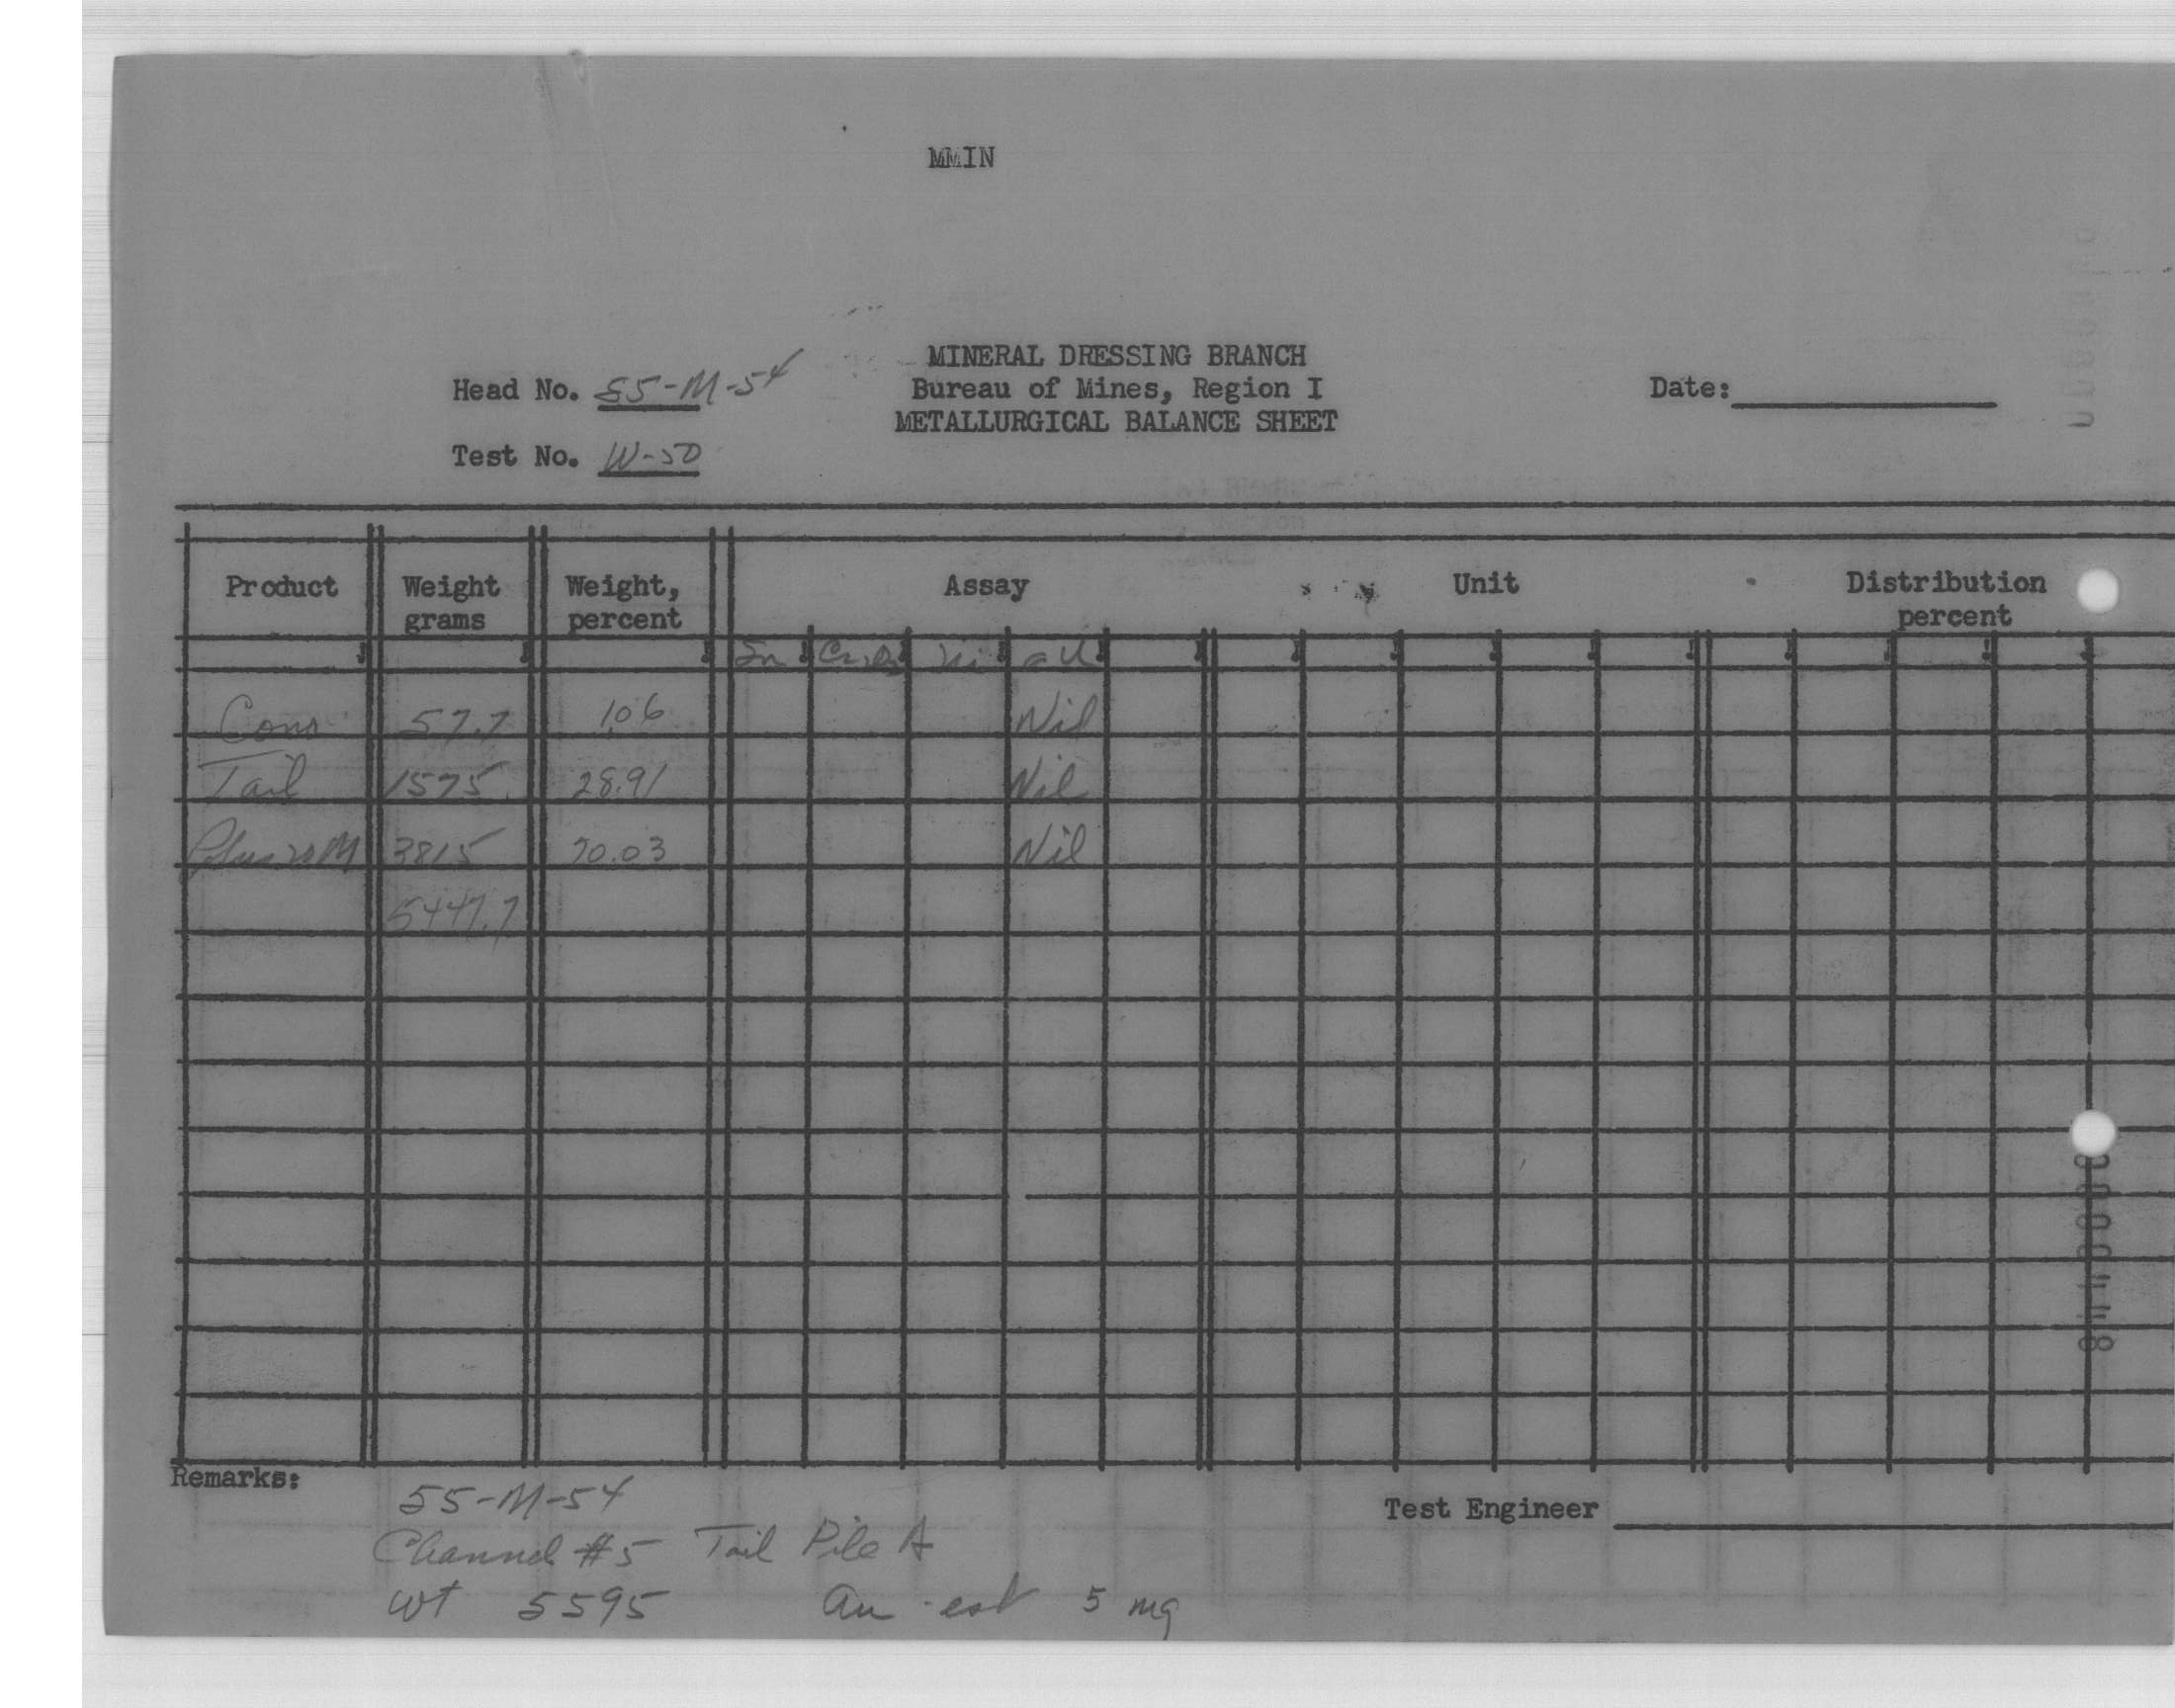 MMIN
MINERAL DRESSING BRANCH
Head No. 55-M-54 Bureau of Mines, Region I Date:
METALLURGICAL BALANCE SHEET
Test No. W-50
Product Weight grams Weight, percent Assay Unit Distribution percent
Sn Ni au
Conc 57.7 1.06 Nil
Tail 1575. 28.91 Nil
Plus 20 M 3815 70.03 Nil
5447.7
Remarks:
55-M-54
Test Engineer
Channel #5 Tail Pile A
Wt 5595 Au est 5 mg